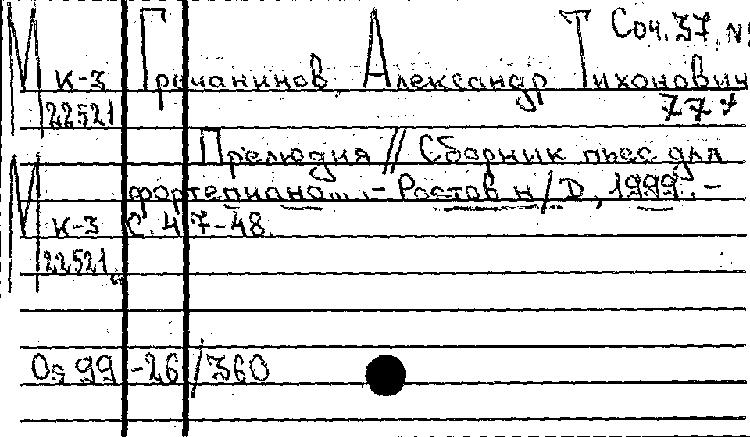 Соч. 37, №
М к-3 Гречанинов Александр Тихонович
22521
Прелюдия // Сборник пьес для
М фортепиано... .- Ростов н/Д, 1999.-
к-3 С. 47-48.
22521
Оз 99-26/360